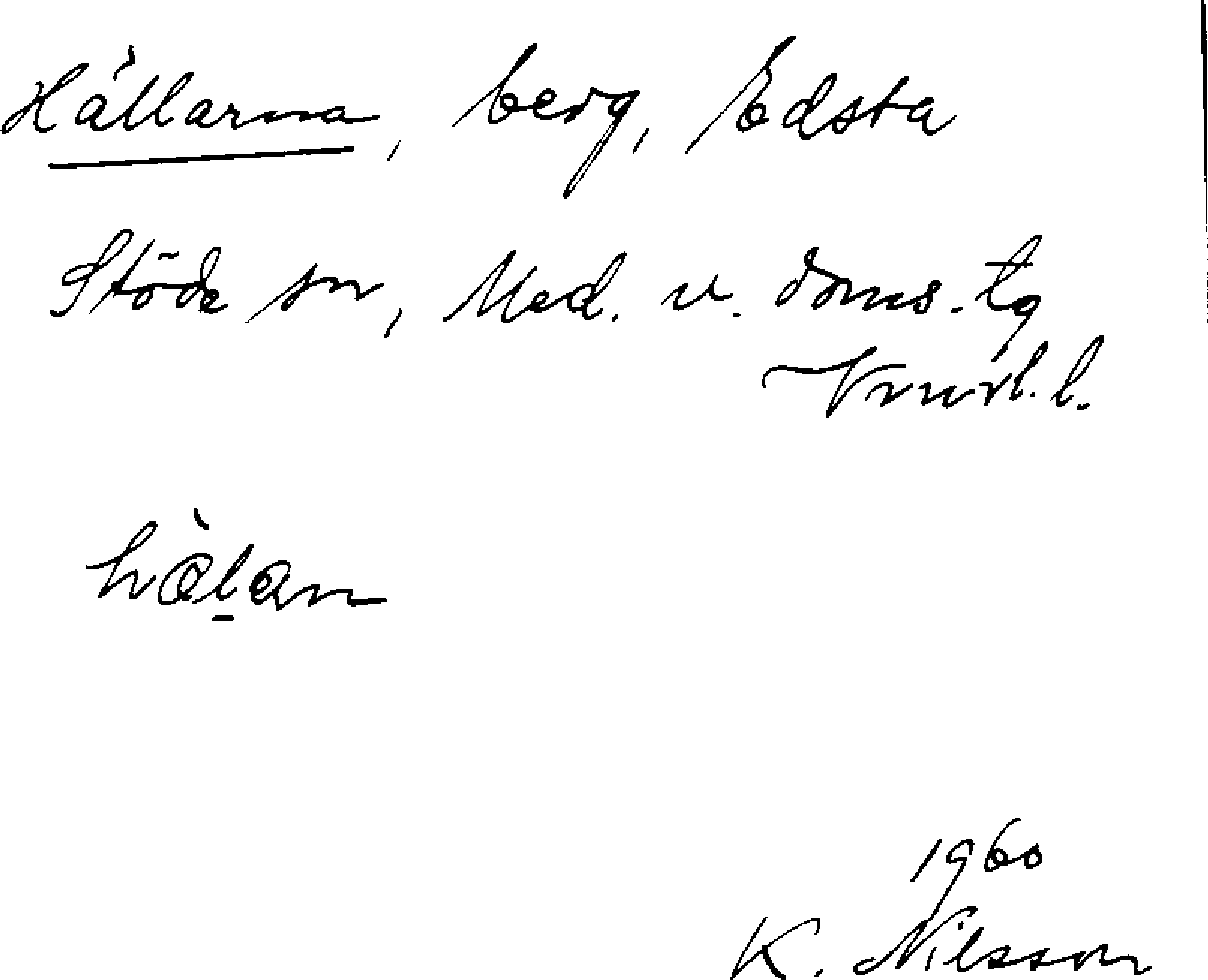 Hällarna, berg, Edsta
Stöde sn, Med. v. doms. tg
Vnorl. l.
1960
K. Nilsson